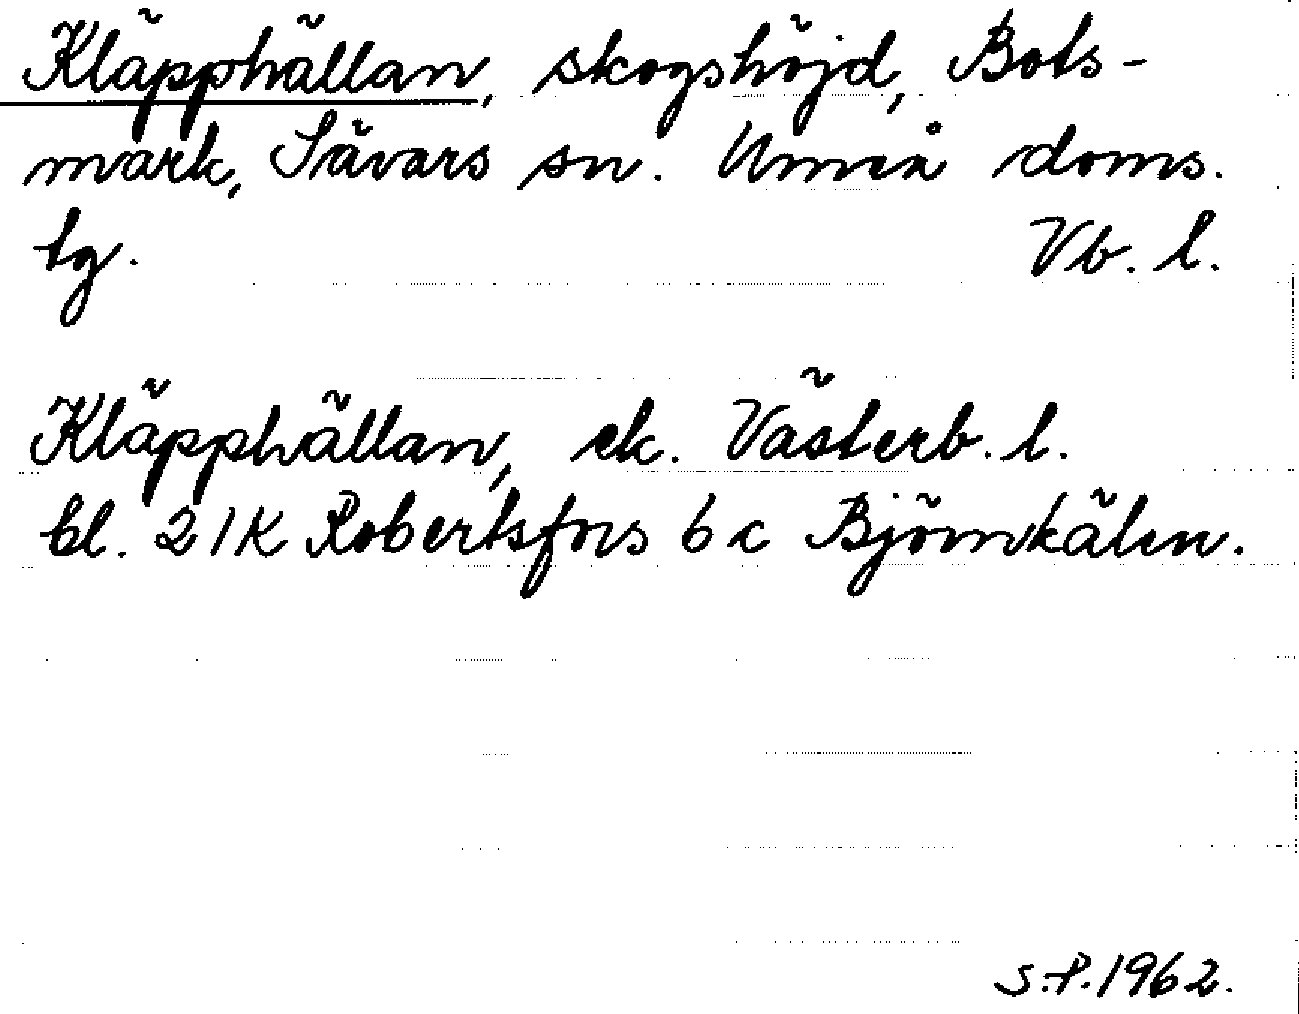 Kläpphällan, skogshöjd, Bots-
mark, Sävars sn. Umeå doms.
tg. Vb. l.
Kläpphällan, ek. Västerb. l.
bl. 21K Robertsfors 6 c Björnkälen.
S.P. 1962.